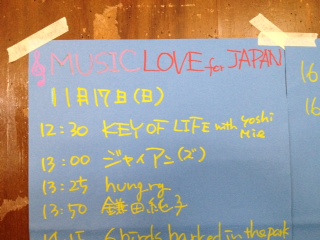 MUSIC LOVE for JAPAN
11月17日(日)
12:30 KEY OF LIFE with Yoshi Mie
13:00 ジャイアン(ズ)
13:25 hungry
13:50 鎌田純子
14:15 6 birds barked in the park
16
16